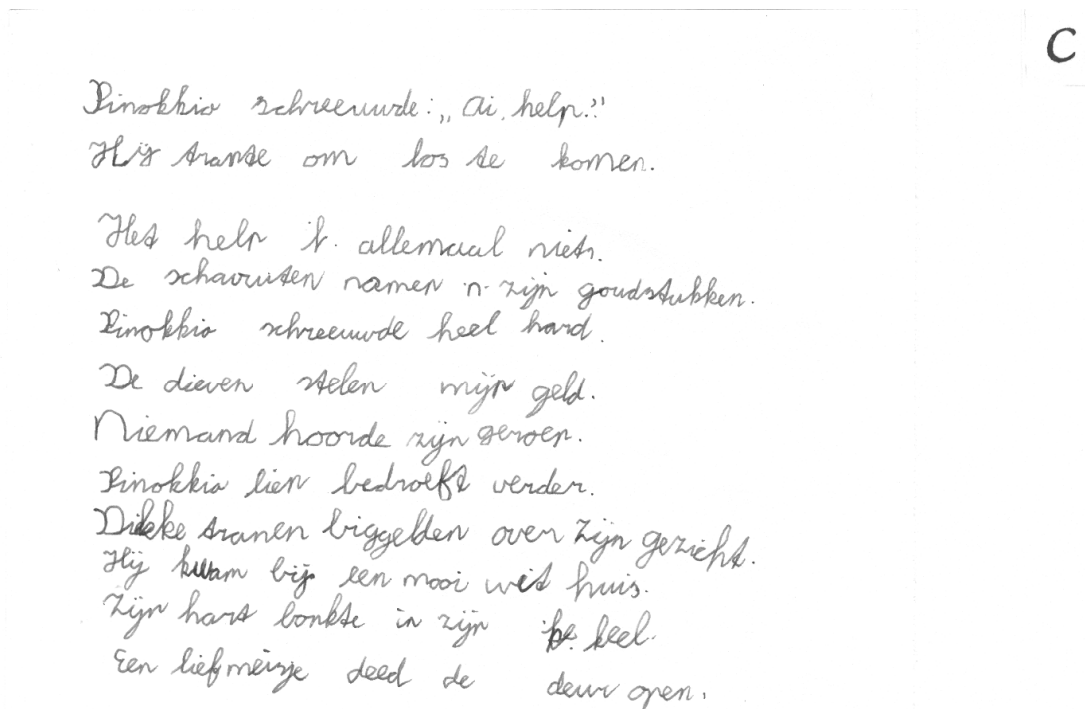 C
Pinokkio schreeuwde: „Ai, help."
Hij trante om los te komen.
Het help 't. allemaal niets.
De schavuiten namen n zijn goudstukken.
Pinokkio schreeuwde heel hard.
De dieven stelen mijn geld.
Niemand hoorde zijn geroep.
Pinokkio liep bedroeft verder.
Dikke tranen biggelden over zijn gezicht.
Hij kwam bij een mooi wit huis.
Zijn hart bonkte in zijn keel.
Een lief meisje deed de deur open.